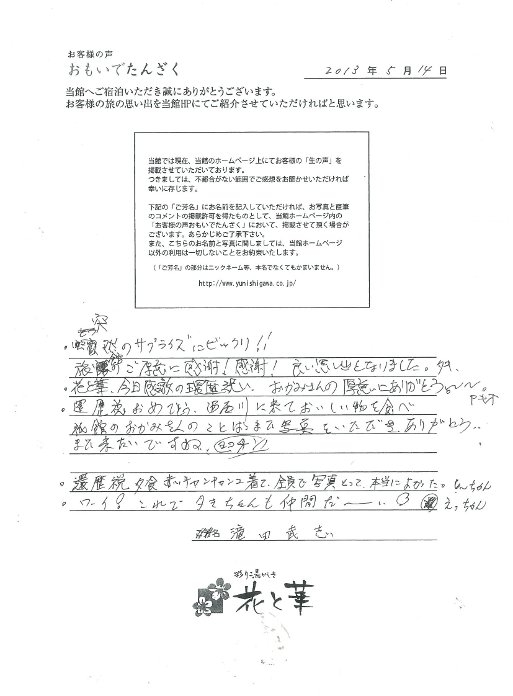 お客様の声
おもいでたんざく
2013年5月14日
当館へご宿泊いただき誠にありがとうございます。
お客様の旅の思い出を当館HPにてご紹介させていただければと思います。
当館では現在、当館のホームページ上にてお客様の「生の声」を
掲載させていただいております。
つきましては、不都合がない範囲でご感想をお聞かせいただければ
幸いに存じます。
下記の「ご芳名」にお名前を記入していただければ、お写真と直筆
のコメントの掲載許可を得たものとして、当館ホームページ内の
「お客様の声おもいでたんざく」において、掲載させて頂く場合が
ございます。あらかじめご了承下さい。
また、こちらのお名前と写真に関しましては、当館ホームページ
以外の利用は一切しないことをお約束いたします。
(「ご芳名」の部分はニックネーム等、本名でなくてもかまいません。)
http://www.yunishigawa.co.jp/
のサプライズにビックリ!!
旅館のご厚意に感謝!感謝!良い思い出となりました。タキ
・花と華、今日感歌の還暦祝い、おかみさんの厚意にありがとう〜〜。
・還暦祝おめでとう、湯西川に来ておいしい物を食べ
旅館のおかみさんのことばまた写真をいただき、ありがとう..
また来たいですね、
・還暦祝 夕食 赤いチャンチャンコ着て、全員で写真とって、本当によかった。
・ワーイ!これでタきちゃんも仲間だ〜い えっちゃん
濱田武志
彩り湯かしき
花と華